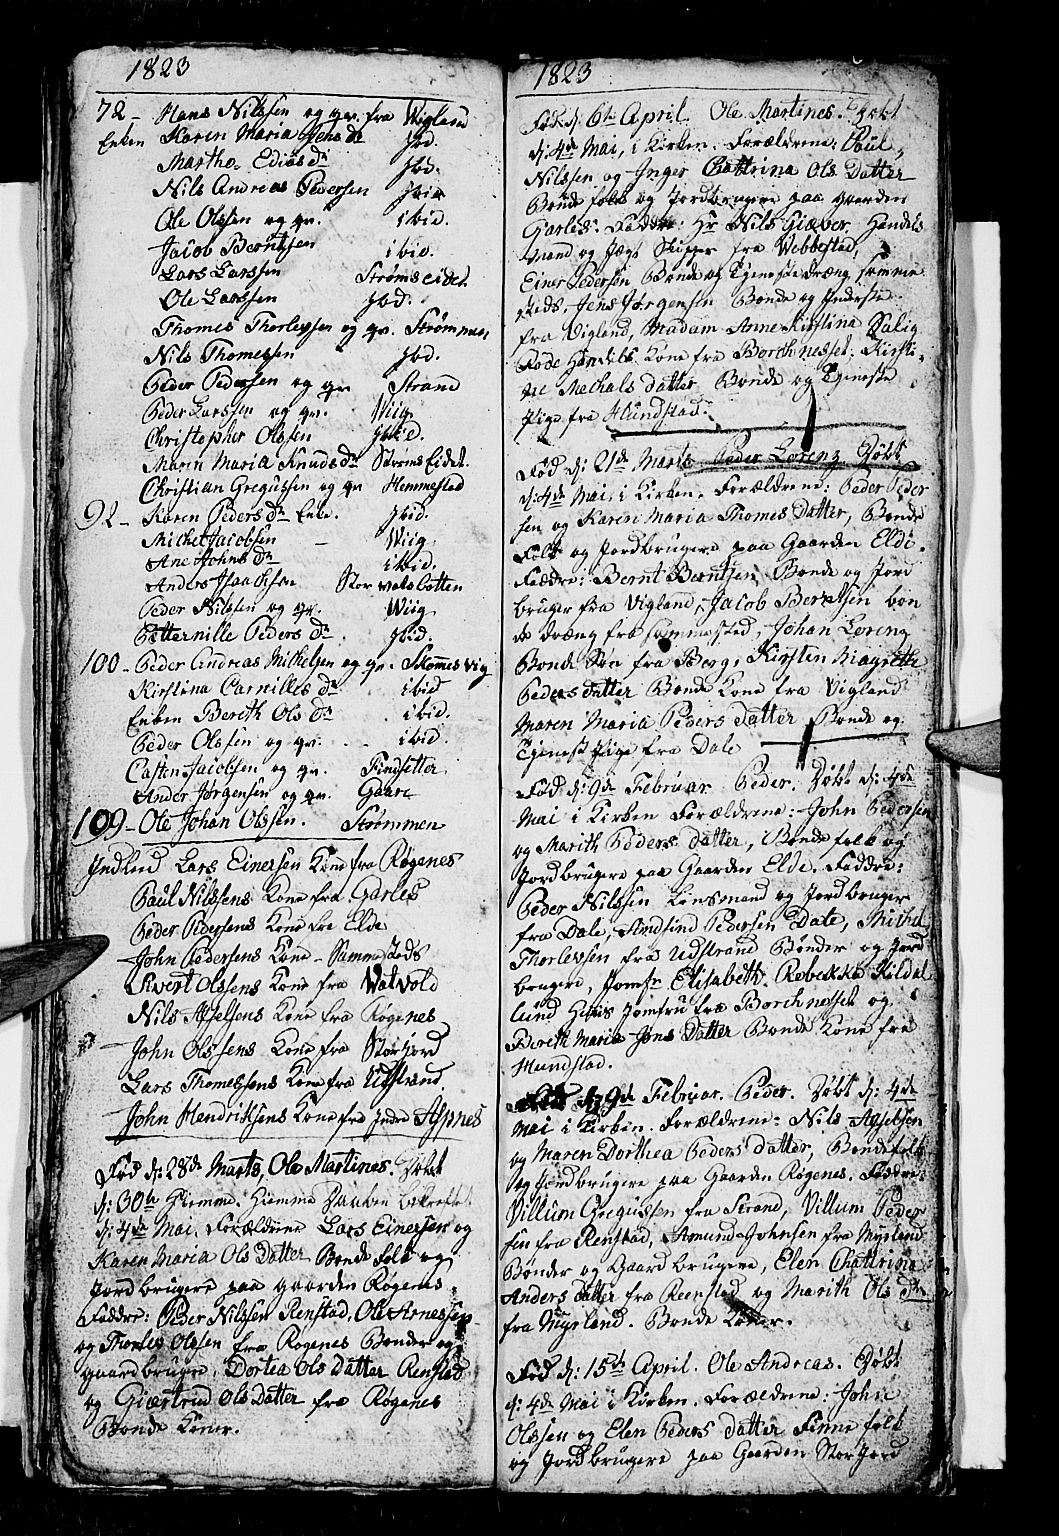 1823
72 - Hans Nilssen og qv. fra Wigland
Enken Karen Maria Jens dr Ibd.
Martha Edias dr Ibd.
Nils Andreas Pedersen Ibid
Ole Olssen og qv. ibid.
Jacob Berntsen ibid.
Lars Larssen Strømseidet
Ole Larssen Ibd.
Thomes Thorleyssen og qv. Strømmen
Nils Thomessen Ibd.
Peder Pedersen og qv Strand
Peder Larssen og qv. Wiig
Christopher Olssen Ibid.
Maren Maria Knuds dr Strøms Eidet.
Christian Gregussen og qv Hemmestad
92 - Karen Peders dr Enke. Ibid.
Michel Jacobsen - Wiig
Ane Johns dr ibid.
Anders Isacksen Stor vatsbotten
Peder Nilssen og qv. Wiig
Petternille Peders dr Ibid.
100 - Peder Andreas Mikkelsen og qv. Skomesvig
Kirstina Carnilles dr ibid
Enken Bereth Ols dr ibid.
Peder Olssen og qv. ibid.
Casten Jacobsen og qv. Findsetter
Ander Jørgensen og qv. Gaare
109 - Ole Johan Olssen. Strømmen
Indled Lars Einersen Kone fra Røgenes
Paul Nilssens Kone fra Garles
Peder Pedersens Kone fra Elde
John Pedersens Kone - Sammesteds
Sivert Olssens Kone fra Vatvold
Nils Asselsens Kone fra Røgenes
John Olssens Kone fra Storjord
Lars Thomessens Kone fra Udstrand
John Hendriksens Kone fra Indre Aspnes
Fød d: 28de Marts, Ole Martines. Døbt
d: 30te Hiemme, Hiemme Daaben bekreftet
d: 4de Mai, Forældrene Lars Einersen og
Karen Maria Ols Datter Bonde folk og
Jordbrugere paa gaarden Røgenes
Faddre: Peder Nilssen Renstad, Ole Arnessen
og Thorles Olssen fra Røgenes Bønder og
gaardbrugere, Dortea Ols Datter Renstad
og Giærtrud Ols Datter fra Røgenes
Bonde Koner.
1823
Fød d: 6te April. Ole Martines. Døbt
d: 4de Mai, i Kirken. Forældrene: Paul
Nilssen og Inger Cattrina Ols Datter
Bonde folk og Jordbrugere paa gaarden
Garles. Faddre: Hr Nils Giæver, Handels
mand og Jægt Skipper fra Webbestad,
Einer Pedersen Bonde og Tjeneste dræng samme
steds, Jens Jørgensen Bonde og Inderste
fra Vigland, Madam Anne Kirstina Salig
Røde Handels Kone fra Borchnesset, Kirsti-
ne Mechals datter Bonde og Tjeneste
Pige fra Hundstad.
Fød d: 21de Marts Peder Lorenz Døbt
d: 4de Mai, i Kirken. Forældrene: Peder Peder
sen og Karen Maria Thomes Datter, Bonde
Folk og Jordbrugere paa Gaarden Elde.
Faddre: Bernt Berntsen Bonde og Jord
bruger fra Vigland, Jacob Berntsen bon
de dræng fra sammested, Johan Loreng
Bonde Søn fra Berg, Kirsten Magrethe
Peders datter Bonde Kone fra Vigland
Maren Maria Peders Datter Bonde og
Tjeneste Pige fra Dale
Fød d: 9de Februar Peder. Døbt d: 4de
Mai i Kirken Forældrene: John Pedersen
og Marith Peders Datter, Bonde folk og
Jordbrugere paa Gaarden Elde. Faddre:
Peder Nilssen Lensmand og Jordbruger
fra Dale, Amund Pedersen Dale, Michel
Thorleyssen fra Udstrand Bønder og Jord
brugere, Jomfr Elisabeth Rebekka Hildal
lund Huus Jomfru fra Borchnesset og
Bereth Maria Jons Datter Bonde Kone fra
Hundstad.
Fød d: 9de Februar. Peder. Døbt d: 4de
Mai i Kirken. Forældrene: Nils Asselsen
og Maren Dorthea Peders Datter, Bonde folk
og Jordbrugere paa Gaarden Røgenes. Faddre:
Villum Gregussen fra Strand, Villum Peder
sen fra Renstad, Asmund Johnsen fra Myrland
Bønder og Gaardbrugere, Elen Chattrina
Anders datter fra Reenstad og Marith Ols Dr
fra Myrland. Bonde Koner.
Fød d: 15de April. Ole Andreas. Døbt
d: 4de Mai i Kirken. Forældrene: John
Olssen og Elen Peders datter Finne folk
og Jordbrugere paa Gaarden Stor Jord